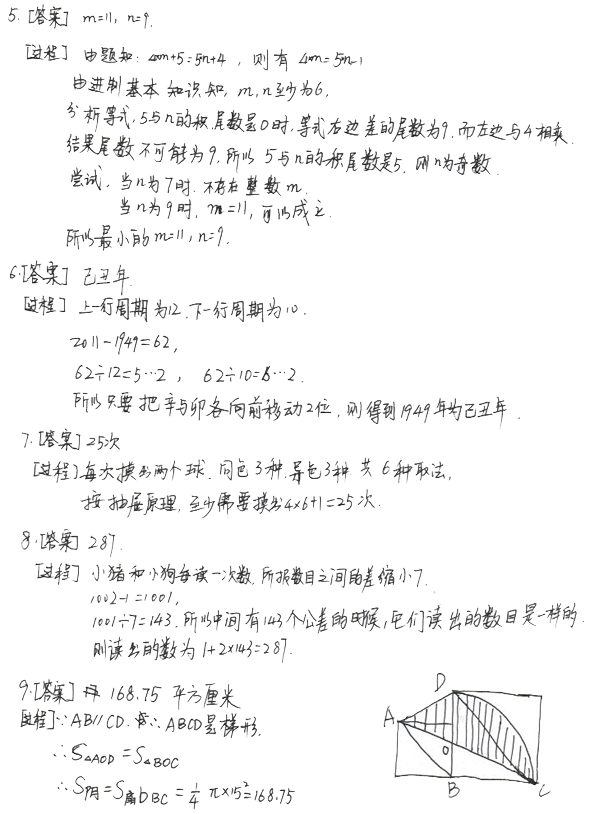 5.[答案] m=11, n=9.
[过程] 由题知: 4m+5=5n+4, 则有 4m=5n-1
由进制基本知识知, m,n至少为6,
分析等式, 5与n的积尾数是0时, 等式右边差的尾数为9, 而左边与4相乘
结果尾数不可能为9, 所以 5与n的积尾数是5, 则n为奇数
尝试, 当n为7时, 不存在整数m.
当n为9时, m=11, 可以成立.
所以最小的m=11, n=9.
6.[答案] 己丑年
[过程] 上一行周期为12, 下一行周期为10.
2011-1949=62,
62÷12=5…2, 62÷10=6…2.
所以只要把辛与卯各向前移动2位, 则得到1949年为己丑年.
7.[答案] 25次
[过程] 每次摸出两个球, 同色3种, 异色3种 共6种取法,
按抽屉原理, 至少需要摸出4×6+1=25次.
8.[答案] 287.
[过程] 小猪和小狗每读一次数, 所报数目之间的差缩小7.
1002-1=1001,
1001÷7=143. 所以中间有143个公差的时候, 它们读出的数目是一样的.
则读出的数为1+2×143=287.
9.[答案] 168.75 平方厘米
[过程] ∵AB∥CD. ∴ABCD是梯形.
∴S△AOD=S△BOC
∴S阴=S扇DBC=1/4 π×15²=168.75
D
A
O
B
C